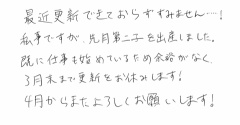 最近更新できておらずすみません……!
私事ですが、先月第二子を出産しました。
既に仕事も始めているため余裕がなく、
3月末まで更新をお休みします!
4月からまたよろしくお願いします!